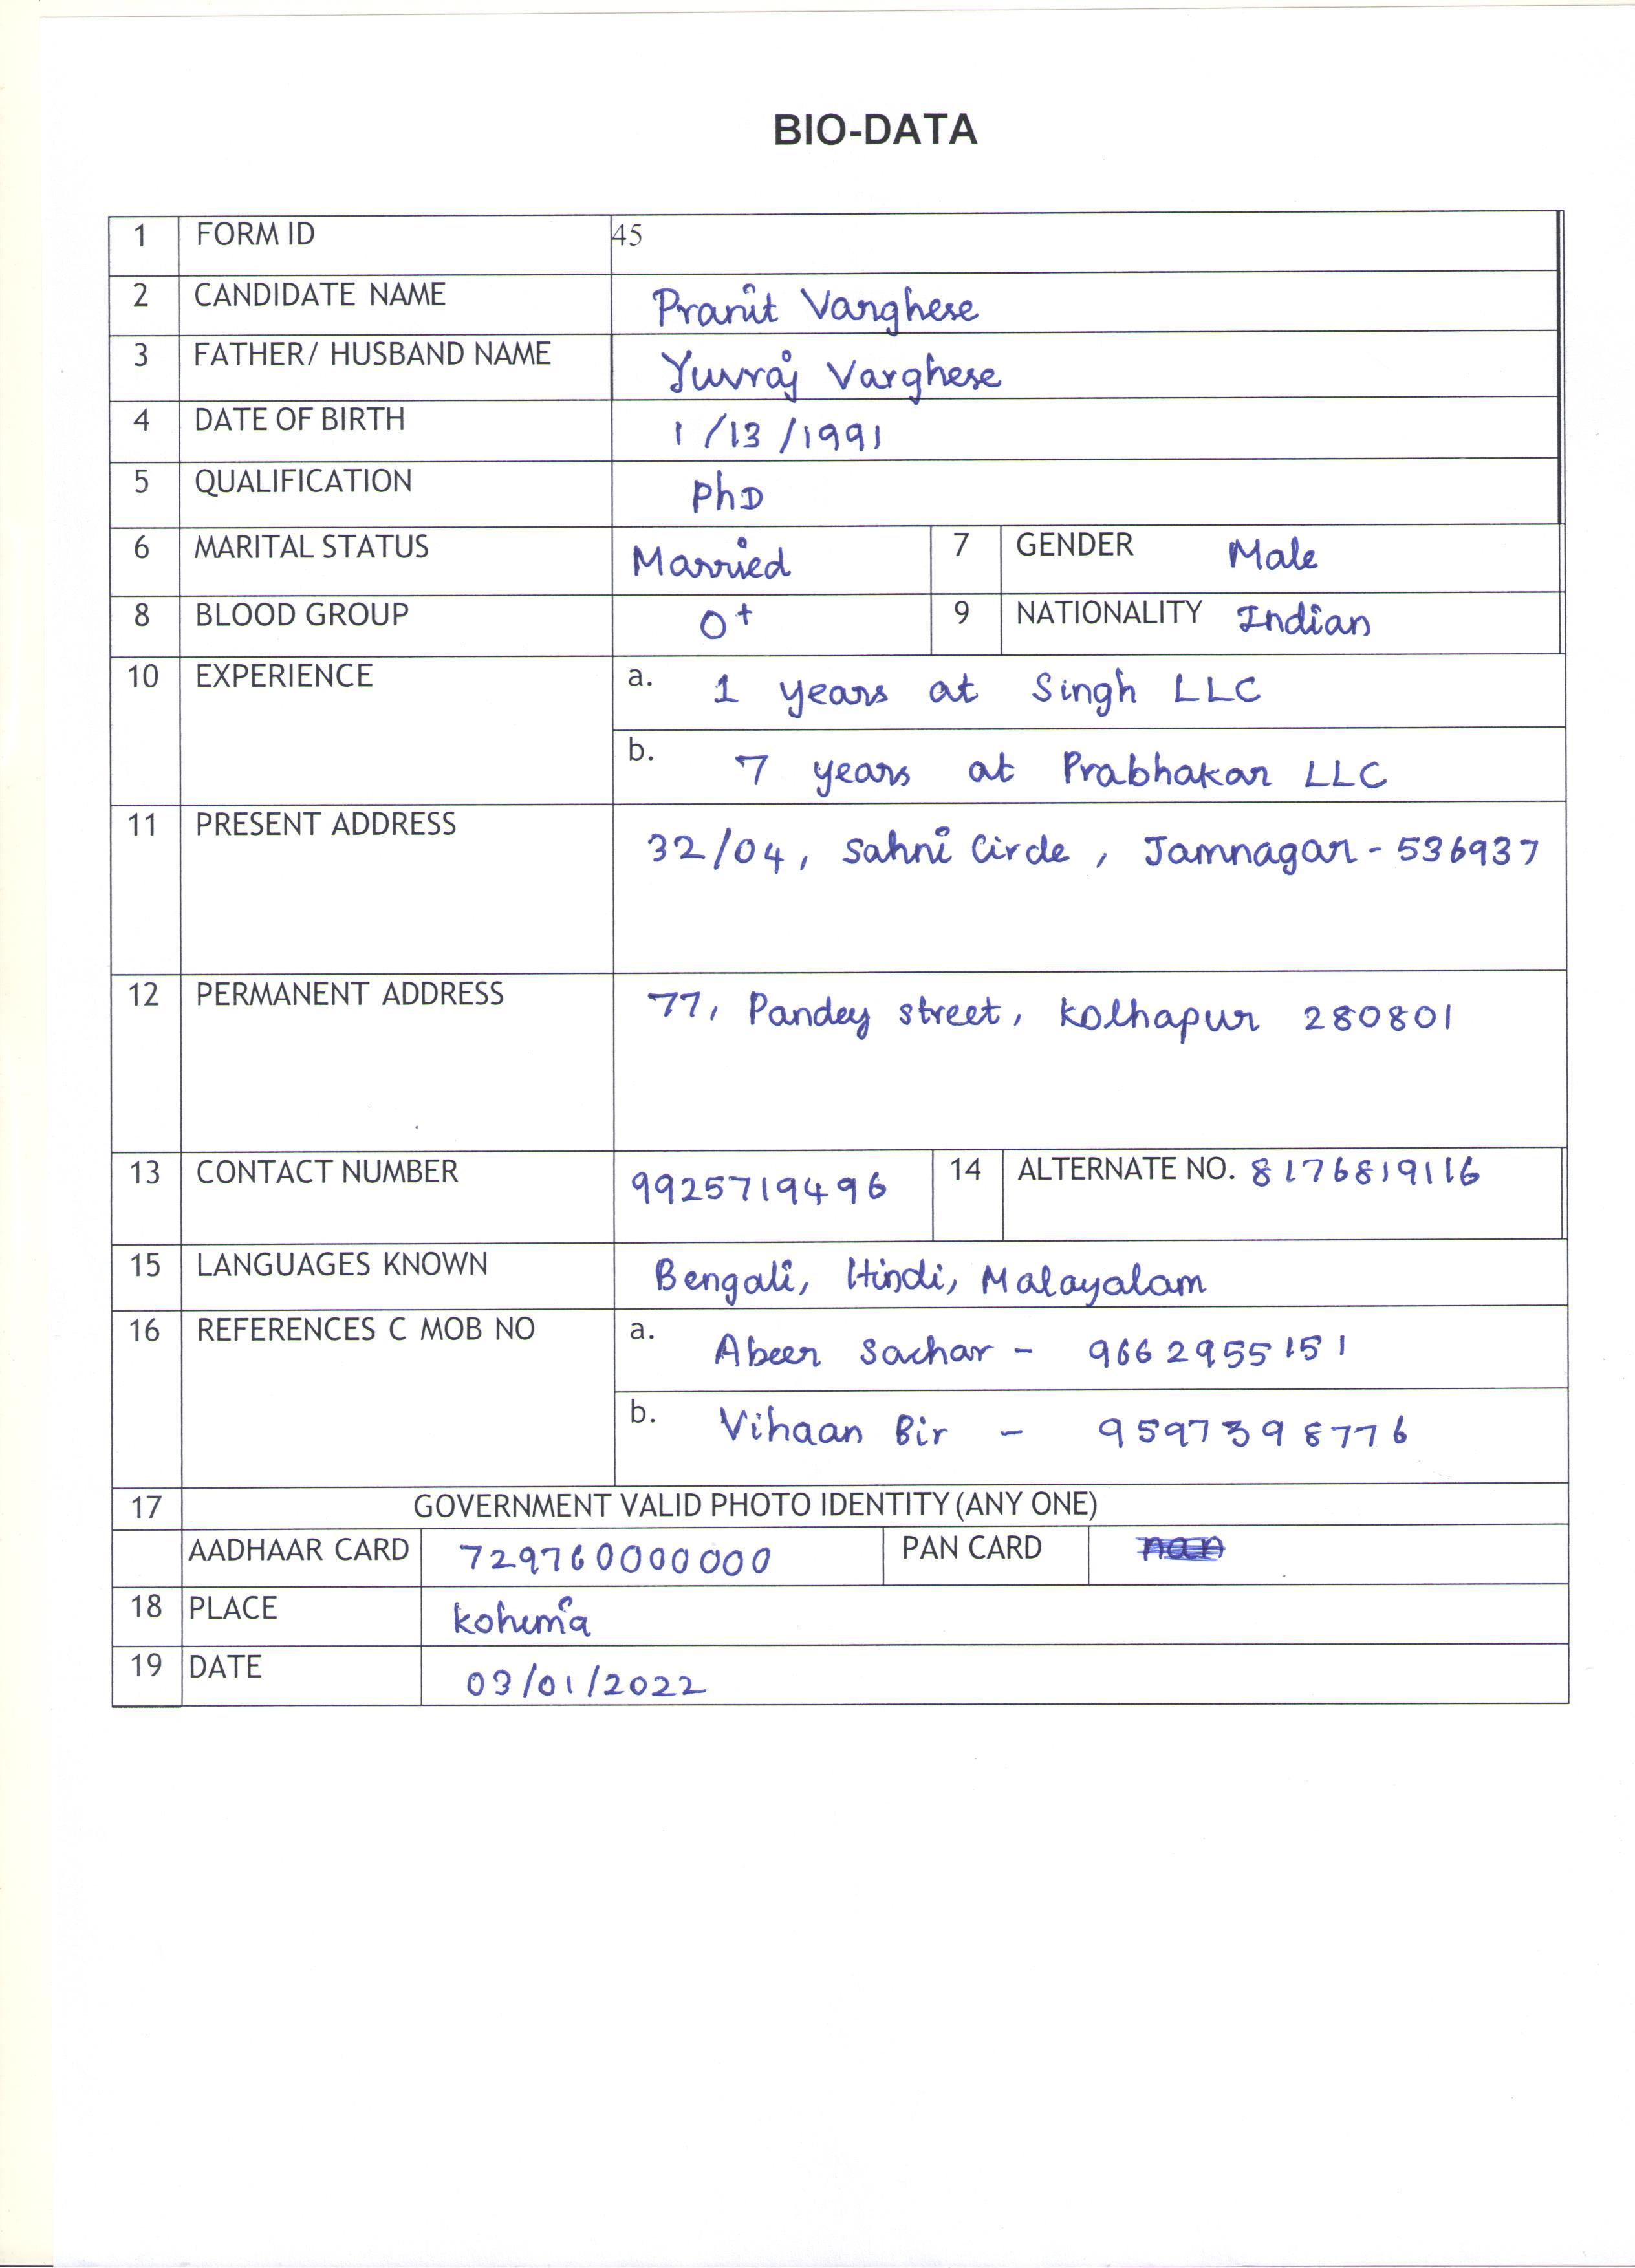 BIO-DATA
1 FORM ID 45
2 CANDIDATE NAME Pranit Varghese
3 FATHER/ HUSBAND NAME Yuvraj Varghese
4 DATE OF BIRTH 1/13/1991
5 QUALIFICATION PhD
6 MARITAL STATUS Married 7 GENDER Male
8 BLOOD GROUP O+ 9 NATIONALITY Indian
10 EXPERIENCE a. 1 years at Singh LLC
b. 7 years at Prabhakar LLC
11 PRESENT ADDRESS 32/04, Sahni Circle, Jamnagar - 536937
12 PERMANENT ADDRESS 77, Pandey street, Kolhapur 280801
13 CONTACT NUMBER 9925719496 14 ALTERNATE NO. 8176819116
15 LANGUAGES KNOWN Bengali, Hindi, Malayalam
16 REFERENCES C MOB NO a. Abeer Sachar - 9662955151
b. Vihaan Bir - 9597398776
17 GOVERNMENT VALID PHOTO IDENTITY (ANY ONE)
AADHAAR CARD 729760000000 PAN CARD nan
18 PLACE Kohima
19 DATE 03/01/2022